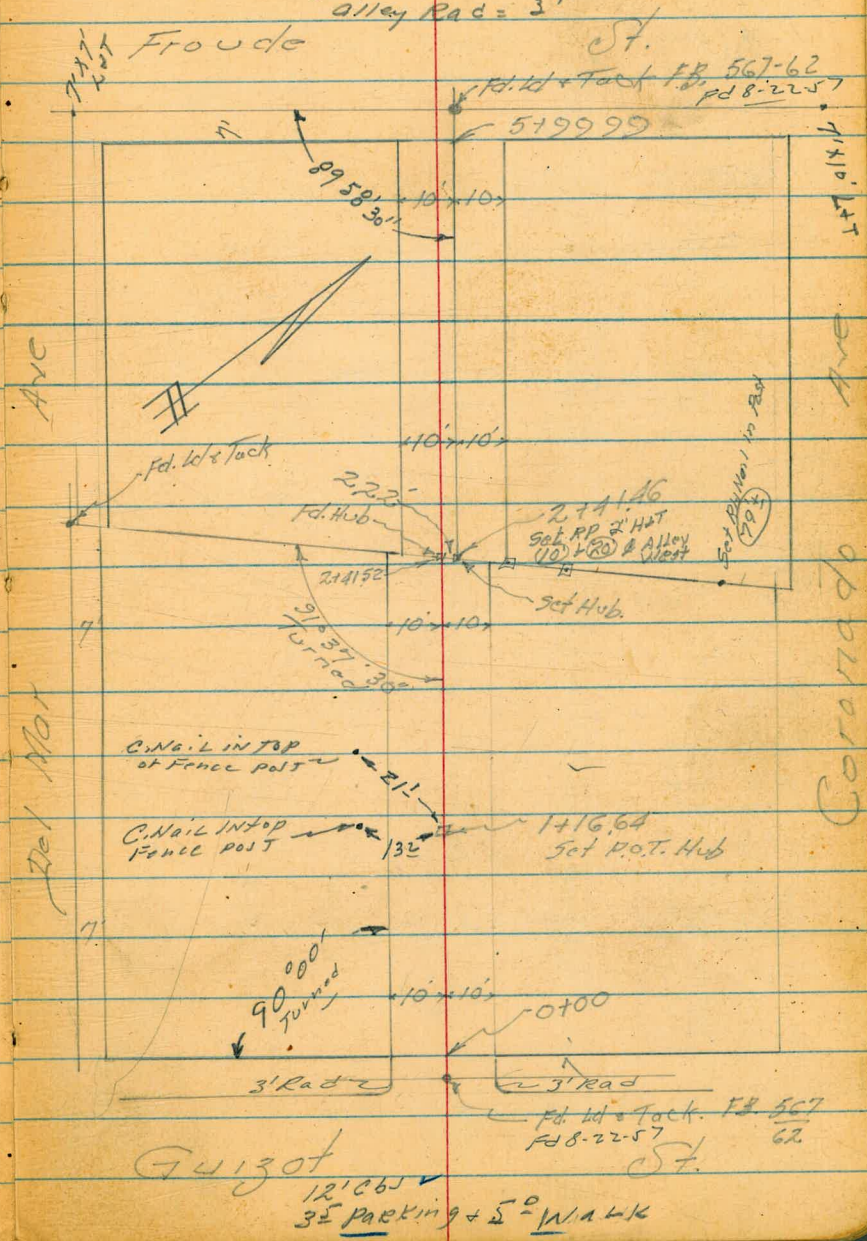 alley Rad = 3'
Froude St.
7'x7'
L&T
Fd. Ld & Tack F.B. 567-62
Fd 8-22-57
5+9999
7'x10' L&T
7'
89°58'30"
10' 10'
Ave
Ave
10' 10'
Fd. Ld & Tack
2.22'
Fd. Hub
2+41.46
Set RP 2" H&T
10' & 20' ⅊ Alley
West
Set RP Nail in Post
2+4152
Set Hub.
10' 10'
91°37'30"
Turned
7'
Del Mar
Coronado
C. Nail in Top
of Fence post
21'
C. Nail in top
Fence post
13²
1+16.64
Set P.O.T. Hub
7'
90°00'
Turned
10' 10'
0+00
3' Rad
3' Rad
Fd. Ld & Tack. F.B. 567
62
Fd 8-22-57
Guizot St.
12' Cbs
3⁵ Parking & 5⁰ Walk